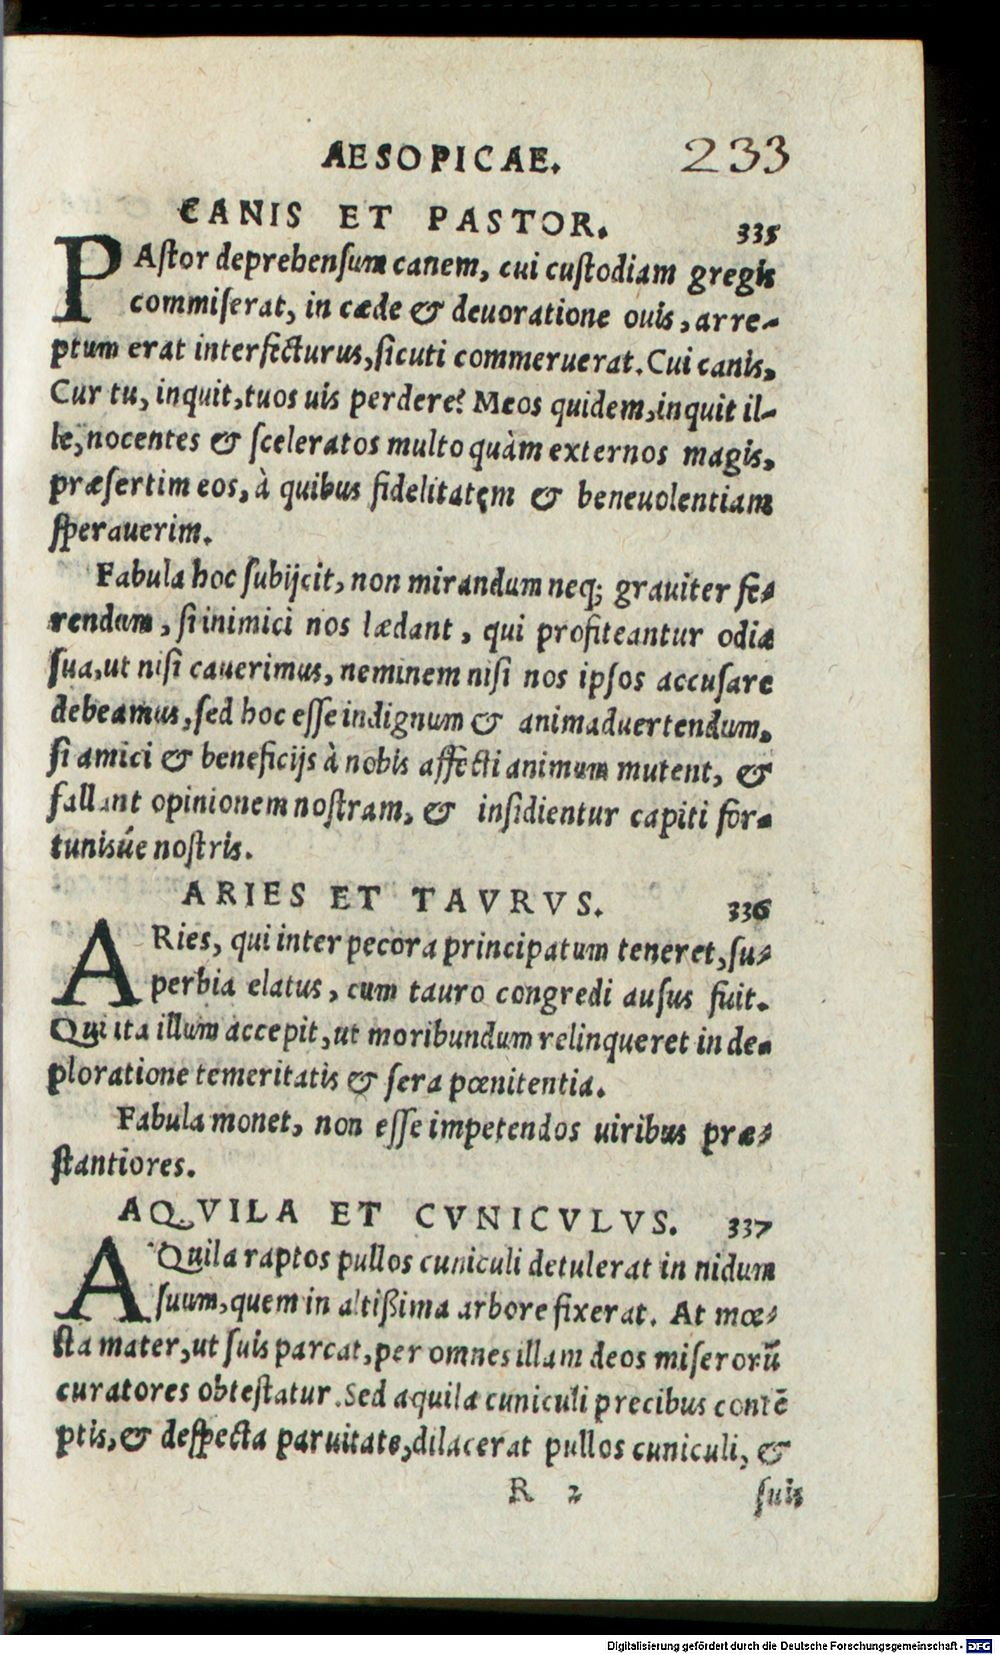 AESOPICAE. 233
CANIS ET PASTOR. 335
PAſtor deprehenſum canem, cui cuſtodiam gregis
commiſerat, in cæde & deuoratione ouis, arre-
ptum erat interfecturus, ſicuti commeruerat. Cui canis,
Cur tu, inquit, tuos uis perdere? Meos quidem, inquit il-
le, nocentes & ſceleratos multo quàm externos magis,
præſertim eos, à quibus fidelitatem & beneuolentiam
ſperauerim.
Fabula hoc ſubijcit, non mirandum neq; grauiter fe-
rendum, ſi inimici nos lædant, qui profiteantur odia
ſua, ut niſi cauerimus, neminem niſi nos ipſos accuſare
debeamus, ſed hoc eſſe indignum & animaduertendum,
ſi amici & beneficijs à nobis affecti animum mutent, &
fallant opinionem noſtram, & inſidientur capiti for-
tunisúe noſtris.
ARIES ET TAVRVS. 336
ARies, qui inter pecora principatum teneret, ſu-
perbia elatus, cum tauro congredi auſus fuit.
Qui ita illum accepit, ut moribundum relinqueret in de-
ploratione temeritatis & ſera pœnitentia.
Fabula monet, non eſſe impetendos uiribus præ-
ſtantiores.
AQVILA ET CVNICVLVS. 337
AQuila raptos pullos cuniculi detulerat in nidum
ſuum, quem in altißima arbore fixerat. At mœ-
ſta mater, ut ſuis parcat, per omnes illam deos miſerorū
curatores obteſtatur. Sed aquila cuniculi precibus contē
ptis, & deſpecta paruitate, dilacerat pullos cuniculi, &
R 2 ſuis
Digitalisierung gefördert durch die Deutsche Forschungsgemeinschaft - DFG